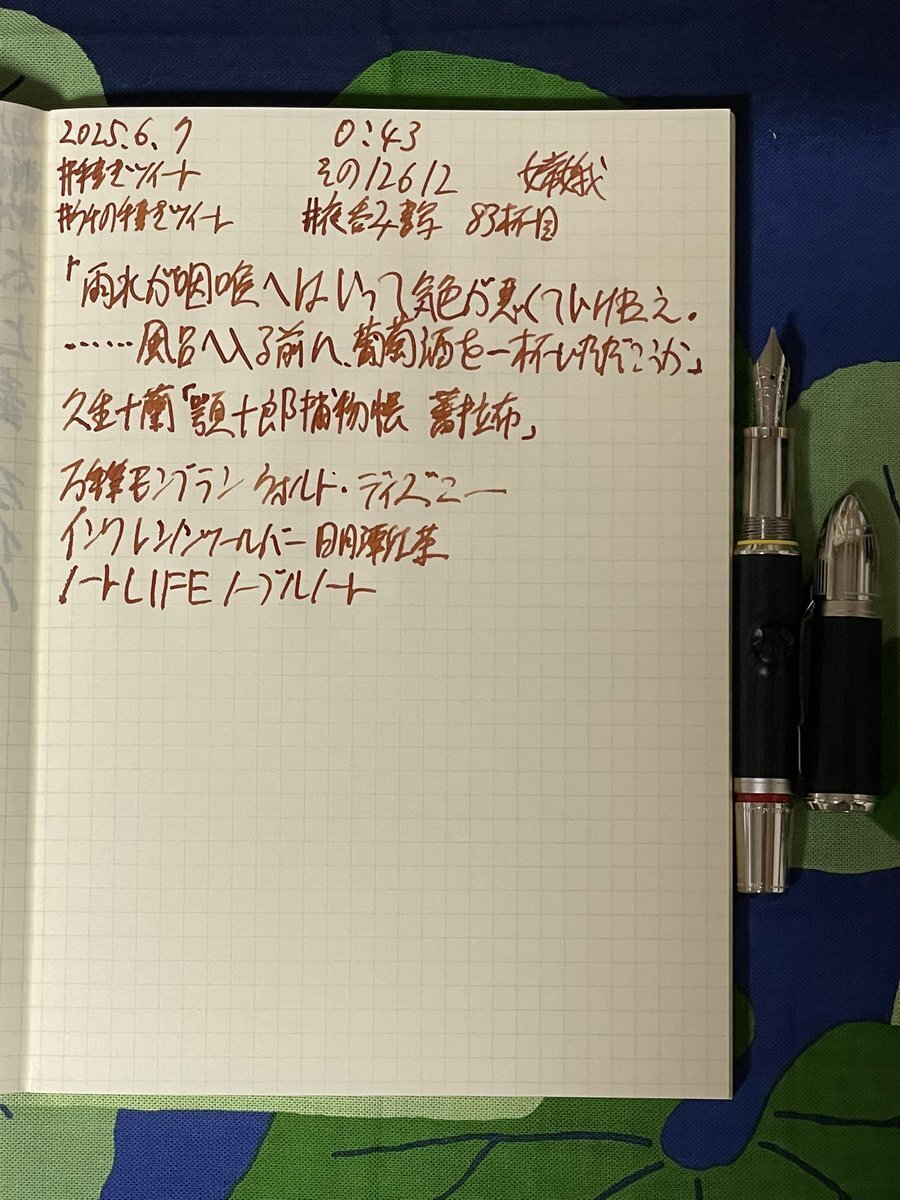 2025.6.7 0:43
#手書きツイート その12612 嫦娥
#外の手書きツイート #夜呑み書写 83杯目
「雨水が咽喉へはいって気色が悪くていけねえ。
……風呂へ入る前に、葡萄酒を一杯いただこうか」
久生十蘭「顎十郎捕物帳 蕃拉布」
万年筆 モンブラン ウォルト・ディズニー
インク レンノンツールバー 日月潭紅茶
ノート LIFE ノーブルノート